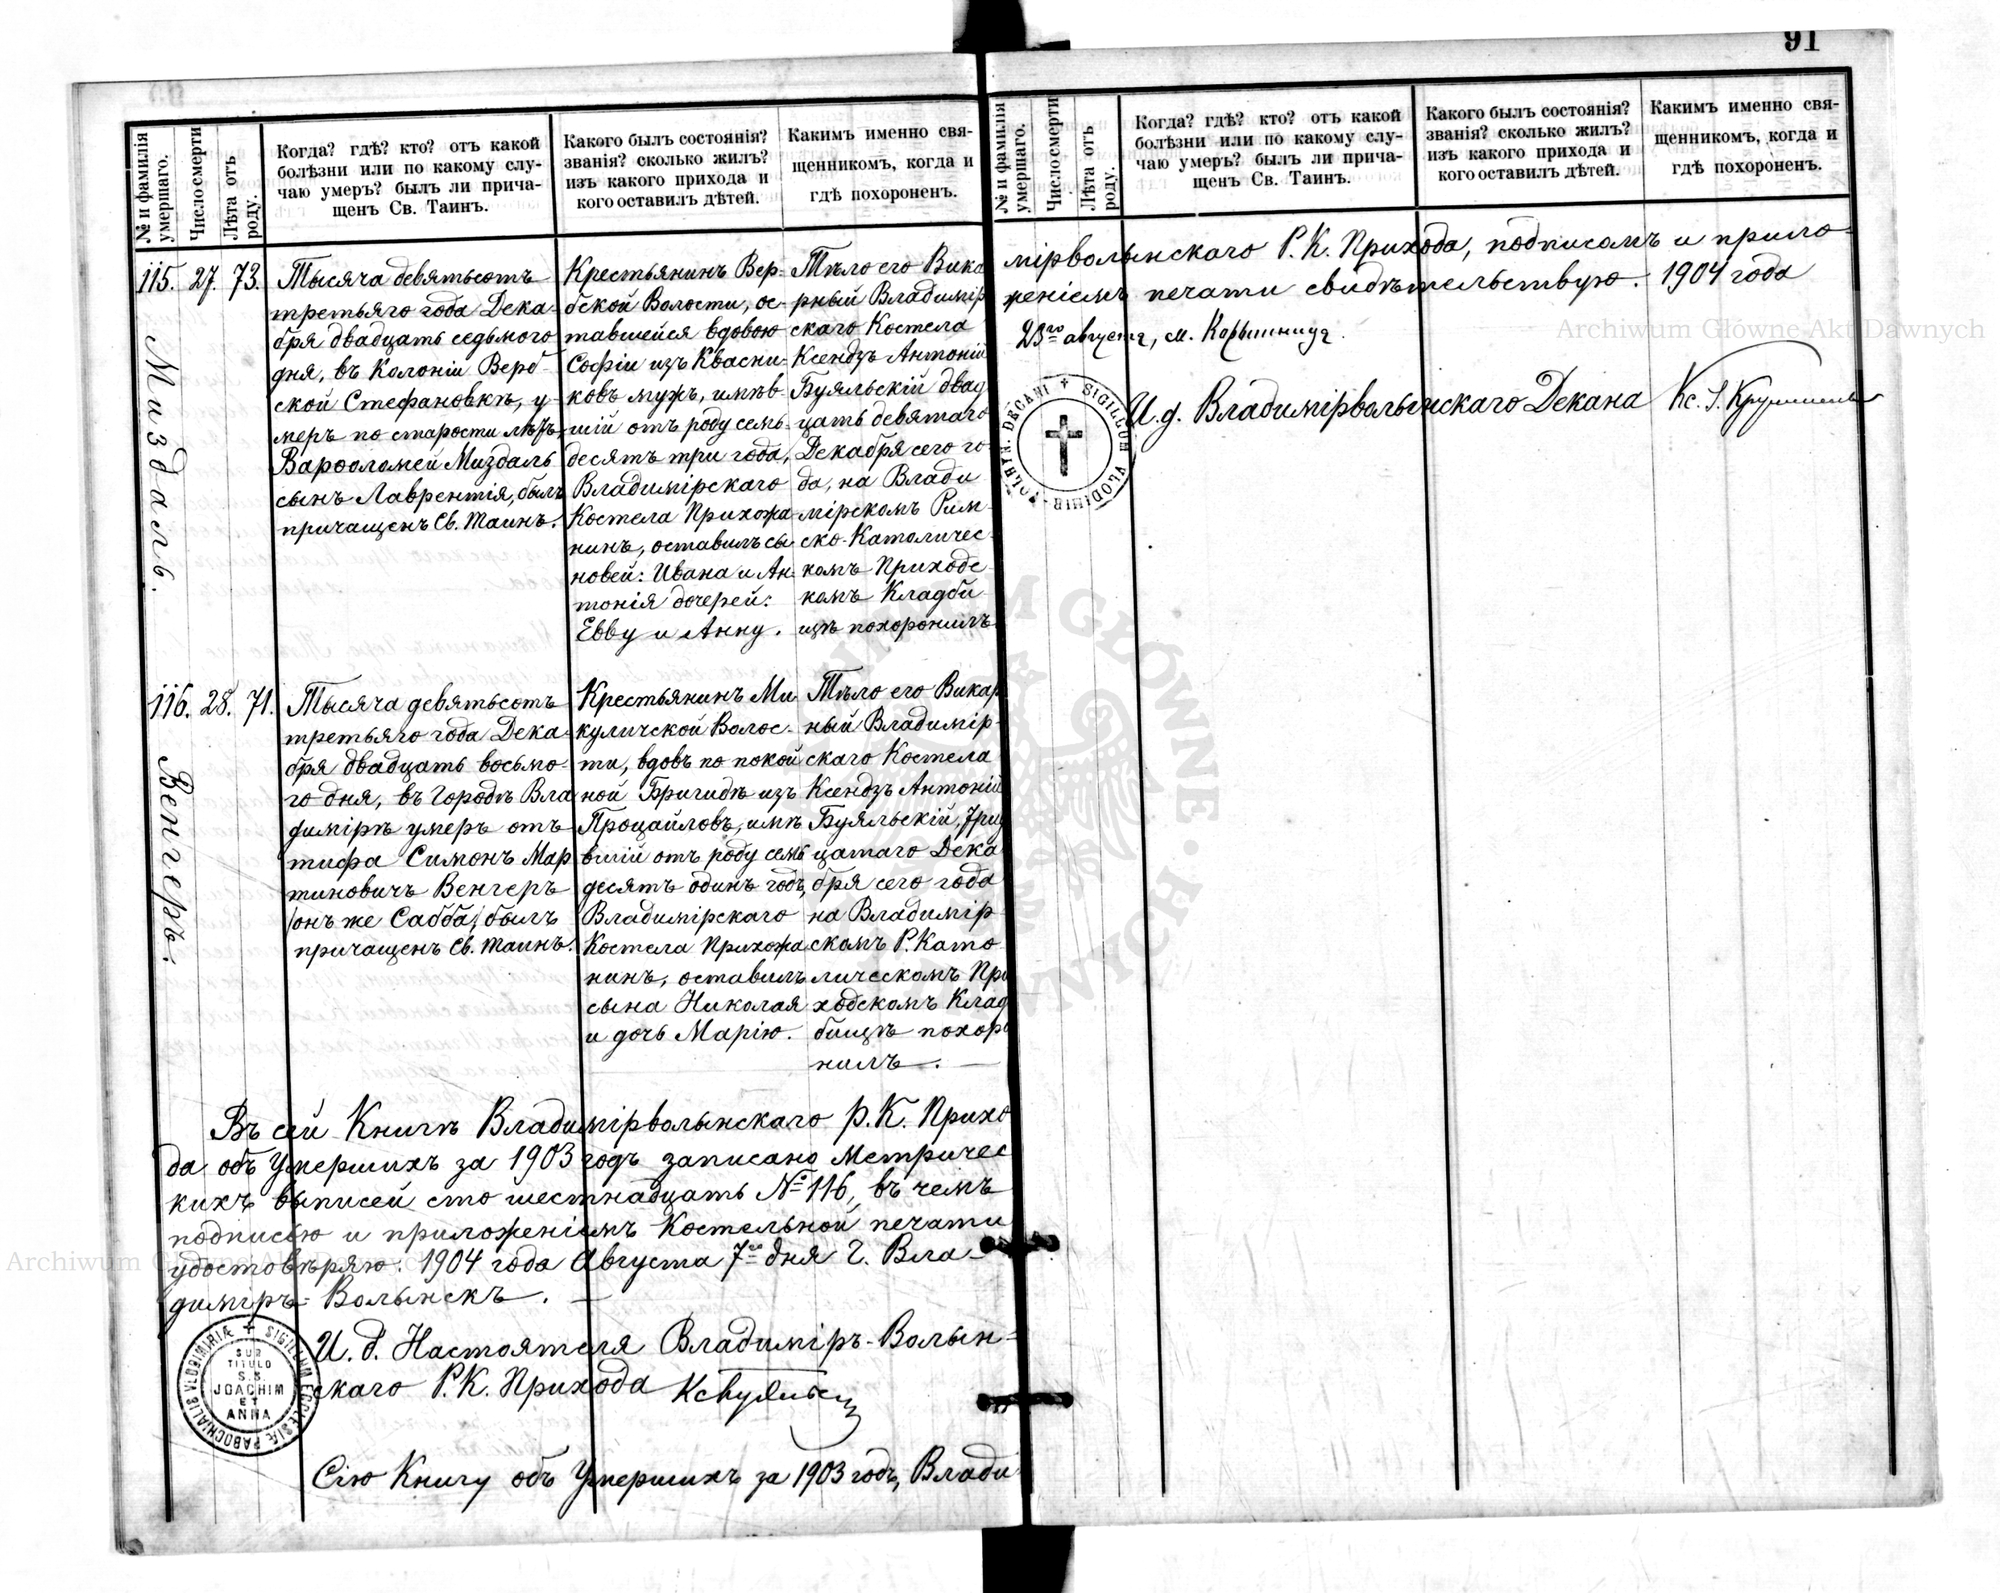 91
№ и фамилія умершаго.
Число смерти
Лѣта отъ роду.
Когда? гдѣ? кто? отъ какой
болѣзни или по какому слу-
чаю умеръ? былъ ли прича-
щенъ Св. Таинъ.
Какого былъ состоянія?
званія? сколько жилъ?
изъ какого прихода и
кого оставилъ дѣтей.
Какимъ именно свя-
щенникомъ, когда и
гдѣ похороненъ.
115. 27. 73.
Миздаль.
Тысяча девятьсотъ
третьяго года Дека-
бря двадцать седьмого
дня, въ Колоніи Верб-
ской Стефановкѣ, у-
меръ по старости лѣтъ,
Варѳоломей Миздаль
сынъ Лаврентія, былъ
причащенъ Св. Таинъ.
Крестьянинъ Вер-
бской Волости, ос-
тавшейся вдовою
Софіи изъ Квасни-
ковъ мужъ, имѣв-
шій отъ роду семь-
десятъ три года,
Владимірскаго
Костела Прихожа-
нинъ, оставилъ сы-
новей: Ивана и Ан-
тонія дочерей:
Евву и Анну.
Тѣло его Вика
рный Владимір
скаго Костела
Ксендзъ Антоній
Буяльскій двад
цать девятаго
Декабря сего го-
да, на Влади
мірскомъ Рим-
ско-Католичес-
комъ Приходс-
комъ Кладби
щѣ похоронилъ
116. 28. 71.
Венгеръ.
Тысяча девятьсотъ
третьяго года Дека-
бря двадцать восьмо-
го дня, въ Городѣ Вла
димірѣ умеръ отъ
тифа Симонъ Мар
тиновичъ Венгеръ
/онъ же Сабба/ былъ
причащенъ Св. Таинъ.
Крестьянинъ Ми
куличской Волос-
ти, вдовъ по покой
ной Бригидѣ изъ
Процайловъ, имѣ
вшій отъ роду семь
десятъ одинъ годъ,
Владимірскаго
Костела Прихожа
нинъ, оставилъ
сына Николая
и дочь Марію.
Тѣло его Викар
ный Владимір-
скаго Костела
Ксендзъ Антоній
Буяльскій, трид
цатаго Дека
бря сего года
на Владимір
скомъ Р. Като-
лическомъ При
ходскомъ Клад
бищѣ похоро
нилъ.
Въ сей Книгѣ Владимірволынскаго Р. К. Прихо
да объ Умершихъ за 1903 годъ записано Метричес
кихъ выписей сто шестнадцать № 116, въ чемъ
подписью и приложеніемъ Костельной печати
удостовѣряю. 1904 года Августа 7го дня г. Вла-
диміръ-Волынскъ.
И. д. Настоятеля Владиміръ-Волын-
скаго Р. К. Прихода
SIGILLUM ECCLESIÆ PAROCHIALIS VLODIMIRIÆ
SUB
TITULO
S.S.
JOACHIM
ET
ANNA
Сію Книгу объ Умершихъ за 1903 годъ, Влади
№ и фамилія умершаго.
Число смерти
Лѣта отъ роду.
Когда? гдѣ? кто? отъ какой
болѣзни или по какому слу-
чаю умеръ? былъ ли прича-
щенъ Св. Таинъ.
Какого былъ состоянія?
званія? сколько жилъ?
изъ какого прихода и
кого оставилъ дѣтей.
Какимъ именно свя-
щенникомъ, когда и
гдѣ похороненъ.
мірволынскаго Р. К. Прихода, подписомъ и прило-
женіемъ печати свидѣтельствую. 1904 года
23го августа, м.
И. д. Владимірволынскаго Декана Кс.
SIGILLUM VLODIMIR-VOLHYN. DECANI
Archiwum Główne Akt Dawnych
Archiwum Główne Akt Dawnych